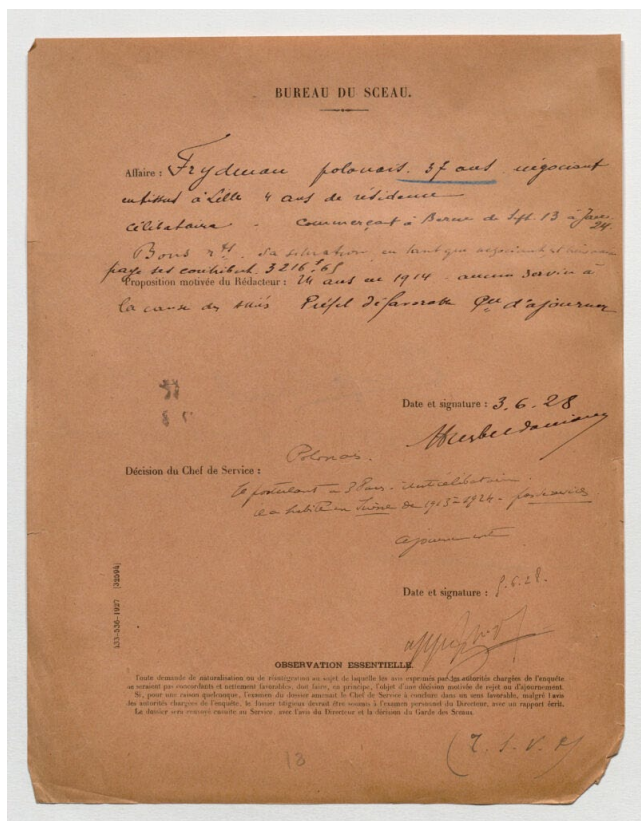 BUREAU DU SCEAU.
Affaire : Frydman polonais. 37 ans négociant
en tissus à Lille 4 ans de résidence
célibataire - commerçant à Berne de Sept. 13 à Janv.
24
Bons rts. Sa situation en tant que négociant et
paye ses contribut. 3216f,65
Proposition motivée du Rédacteur : 24 ans en 1914 - aucun service à
la cause des alliés Préfet défavorable d'ajourner
Date et signature : 3.6.28
Polonais.
Décision du Chef de Service :
Le postulant a 37 ans. célibataire.
a habité en Suisse de 1913-1924.
ajournement
Date et signature : 5.6.28.
133-536-1927 [32594]
OBSERVATION ESSENTIELLE.
Toute demande de naturalisation ou de réintégration au sujet de laquelle les avis exprimés par les autorités chargées de l'enquête
ne seraient pas concordants et nettement favorables, doit faire, en principe, l'objet d'une décision motivée de rejet ou d'ajournement.
Si, pour une raison quelconque, l'examen du dossier amenait le Chef de Service à conclure dans un sens favorable, malgré l'avis
des autorités chargées de l'enquête, le dossier litigieux devrait être soumis à l'examen personnel du Directeur, avec un rapport écrit.
Le dossier sera renvoyé ensuite au Service, avec l'avis du Directeur et la décision du Garde des Sceaux.
13
(T. S. V. P)